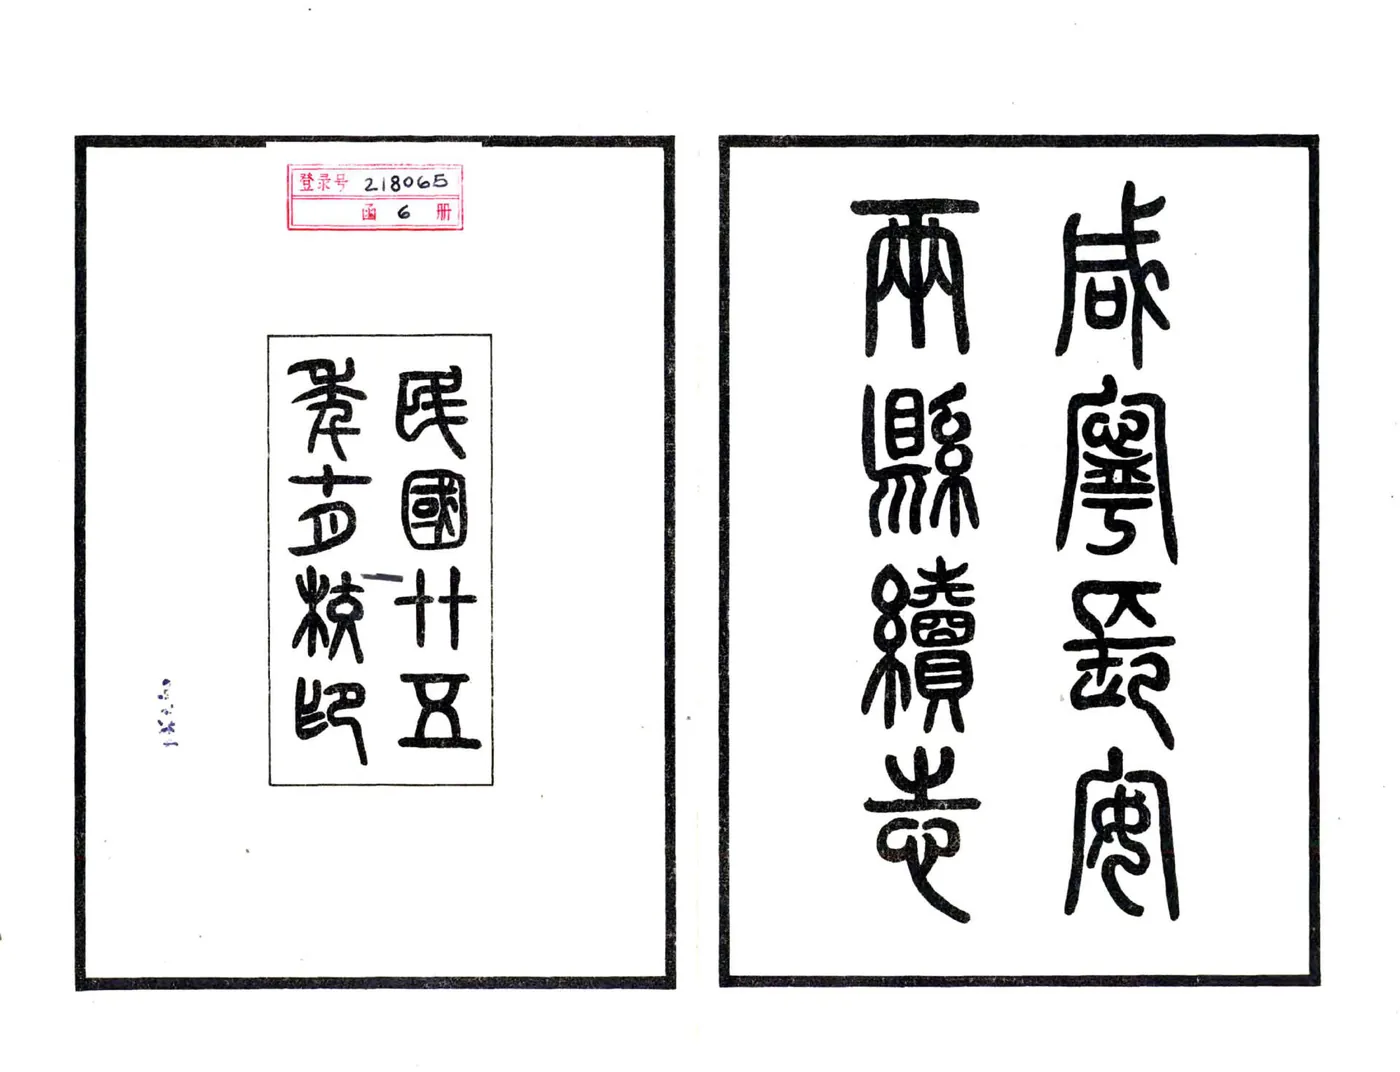 咸寧長安
兩縣續志
登录号 218065
函 6 册
民國廿五
年十月校印